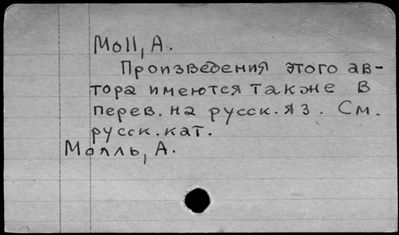 Moll, A.
Произведения этого ав-
тора имеются также в
перев. на русск. яз. См.
русск. кат.
Молль, А.